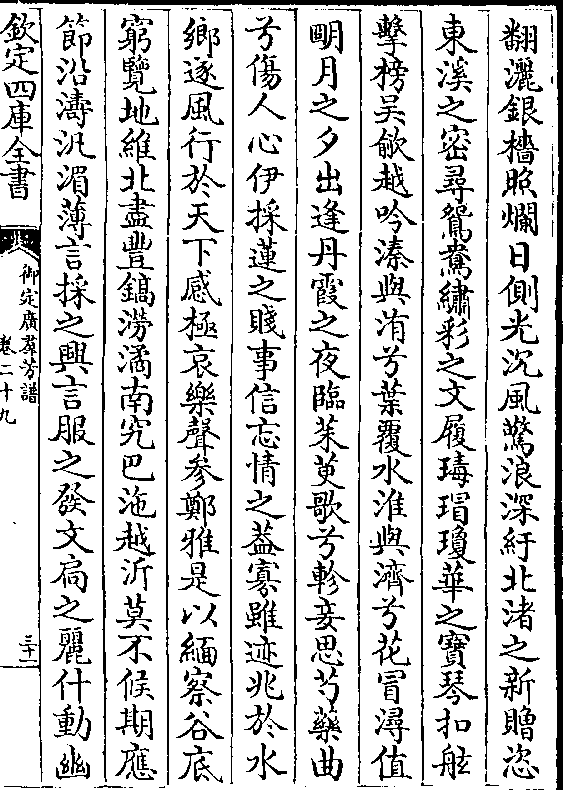 翻灑銀檣照爛日側光沉風驚浪深紆北渚之新贈恣
東溪之密尋鴛鴦繡彩之文履瑇瑁瓊華之寶琴扣舷
擊榜吳歈越吟溱與洧兮葉覆水淮與濟兮花冒潯值
明月之夕出逢丹霞之夜臨茱萸歌兮軫妾思芍藥曲
兮傷人心伊採蓮之賤事信忘情之葢寡雖迹兆於水
鄉遂風行於天下感極哀樂聲參鄭雅是以緬察谷底
窮覽地維北盡豐鎬澇潏南究巴沲越沂莫不候期應
節沿濤汎湄薄言採之興言服之發文扃之麗什動幽
欽定四庫全書
御定廣羣芳譜
卷二十九
三十一